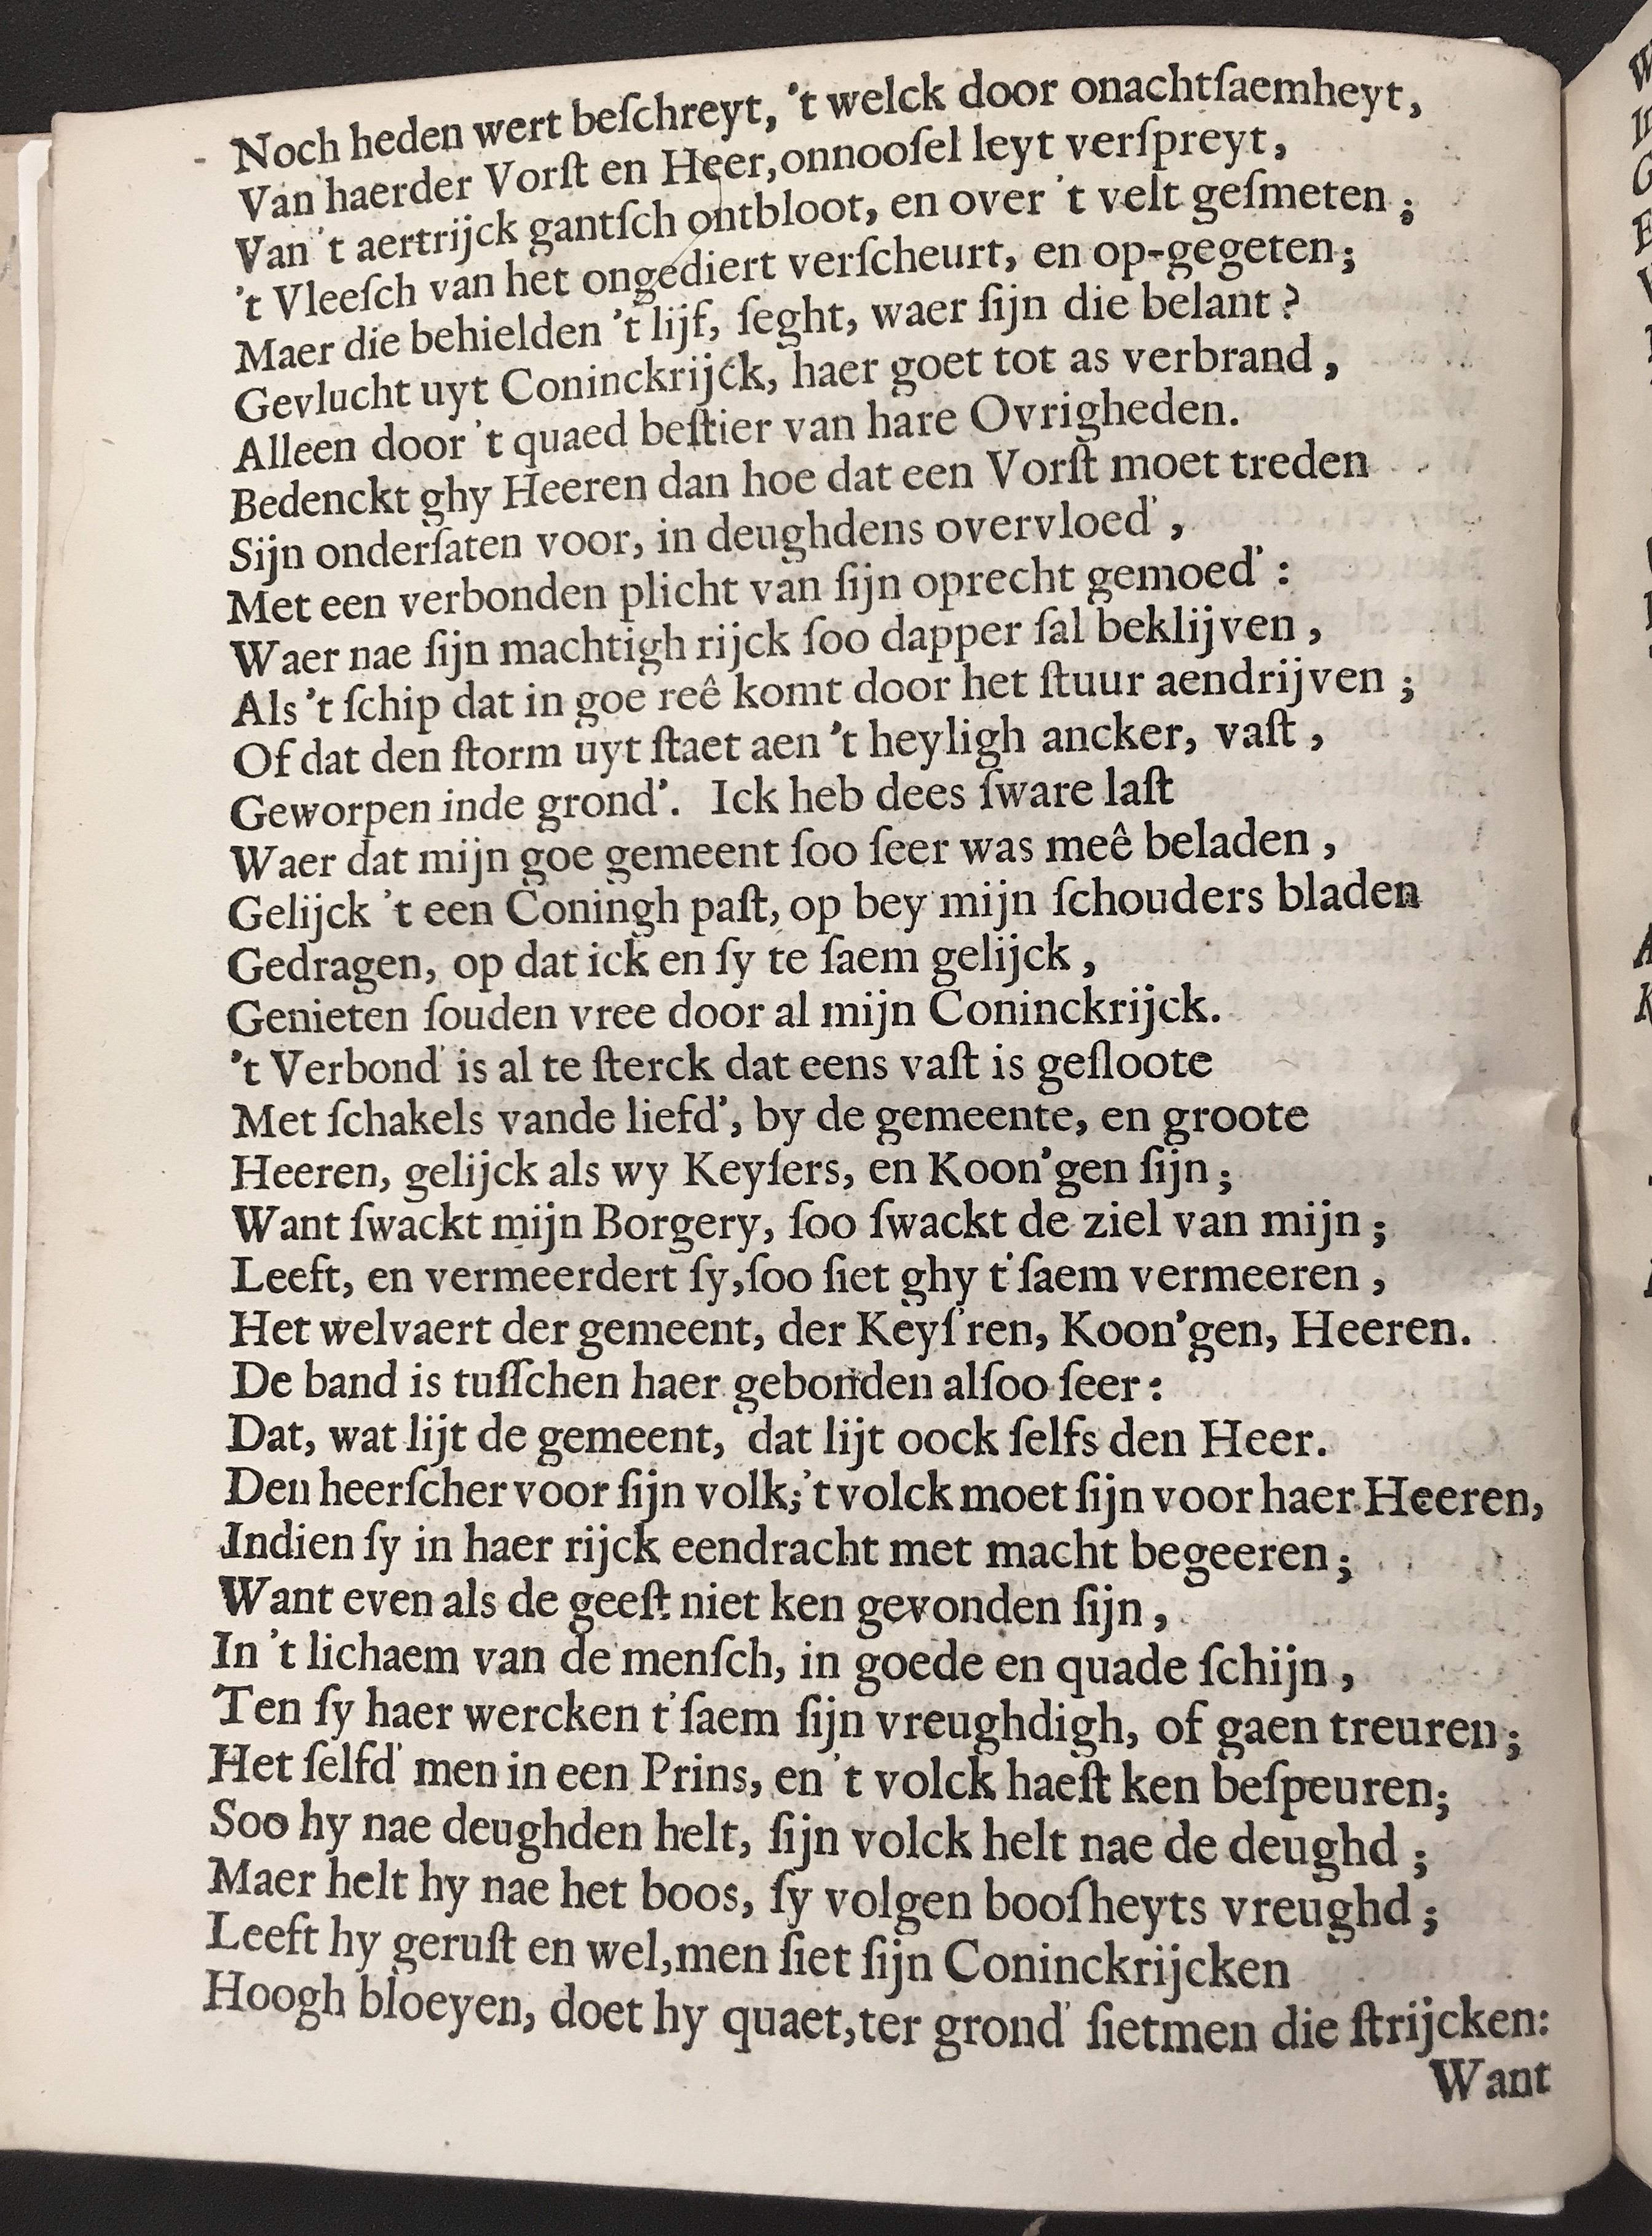 Noch heden wert beſchreyt, 't welck door onachtſaemheyt,
Van haerder Vorſt en Heer, onnooſel leyt verſpreyt,
Van 't aertrijck gantſch ontbloot, en over 't velt geſmeten;
't Vleeſch van het ongediert verſcheurt, en op-gegeten;
Maer die behielden 't lijf, ſeght, waer ſijn die belant?
Gevlucht uyt Coninckrijck, haer goet tot as verbrand,
Alleen door 't quaed beſtier van hare Ovrigheden.
Bedenckt ghy Heeren dan hoe dat een Vorſt moet treden
Sijn onderſaten voor, in deughdens overvloed',
Met een verbonden plicht van ſijn oprecht gemoed':
Waer nae ſijn machtigh rijck ſoo dapper ſal beklijven,
Als 't ſchip dat in goe reê komt door het ſtuur aendrijven;
Of dat den ſtorm uyt ſtaet aen 't heyligh ancker, vaſt,
Geworpen inde grond'. Ick heb dees ſware laſt
Waer dat mijn goe gemeent ſoo ſeer was meê beladen,
Gelijck 't een Coningh paſt, op bey mijn ſchouders bladen
Gedragen, op dat ick en ſy te ſaem gelijck,
Genieten ſouden vree door al mijn Coninckrijck.
't Verbond' is al te ſterck dat eens vaſt is geſloote
Met ſchakels vande liefd', by de gemeente, en groote
Heeren, gelijck als wy Keyſers, en Koon'gen ſijn;
Want ſwackt mijn Borgery, ſoo ſwackt de ziel van mijn;
Leeft, en vermeerdert ſy, ſoo ſiet ghy t'ſaem vermeeren,
Het welvaert der gemeent, der Keyſ'ren, Koon'gen, Heeren.
De band is tuſſchen haer gebonden alſoo ſeer:
Dat, wat lijt de gemeent, dat lijt oock ſelfs den Heer.
Den heerſcher voor ſijn volk; 't volck moet ſijn voor haer Heeren,
Indien ſy in haer rijck eendracht met macht begeeren;
Want even als de geeſt niet ken gevonden ſijn,
In 't lichaem van de menſch, in goede en quade ſchijn,
Ten ſy haer wercken t'ſaem ſijn vreughdigh, of gaen treuren;
Het ſelfd' men in een Prins, en 't volck haeſt ken beſpeuren;
Soo hy nae deughden helt, ſijn volck helt nae de deughd;
Maer helt hy nae het boos, ſy volgen booſheyts vreughd;
Leeft hy geruſt en wel, men ſiet ſijn Coninckrijcken
Hoogh bloeyen, doet hy quaet, ter grond' ſietmen die ſtrijcken:
Want